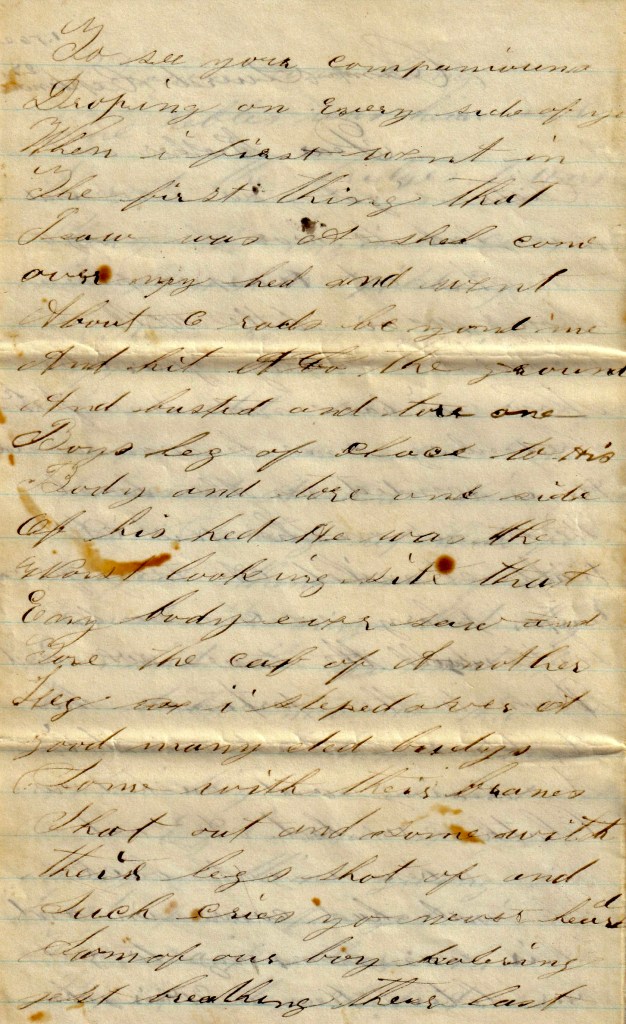 To see your companiouns
Droping on Every side of yo
When i first went in
The first thing that
I saw was A shel come
over my hed and went
About 6 rods be yond me
And hit A the ground
And busted and tore one
Boys leg of close to His
Body and tore one side
Of his hed He was the
Worst looking sit that
Eny body ever saw and
Tore the caf of A nother
Leg i steped over A
good many ded bodys
Some with their branes
Shot out and some with
their legs shot of and
Such cries yo never heard
Som of our boy holering
just breathing their last